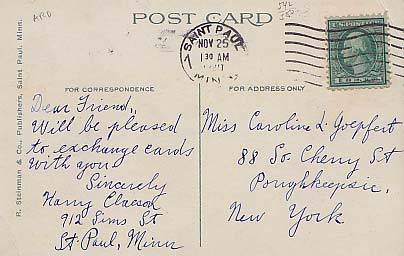 ARD
POST CARD
SAINT PAUL
NOV 25
1 30 AM
MINN
R. Steinman & Co., Publishers, Saint Paul, Minn.
FOR CORRESPONDENCE
FOR ADDRESS ONLY
Dear Friend,
Will be pleased
to exchange cards
with you
Sincerely
Harry Claeson
912 Sims St
St. Paul, Minn
Miss Caroline L. Goepfert
88 So. Cherry St
Poughkeepsie,
New York